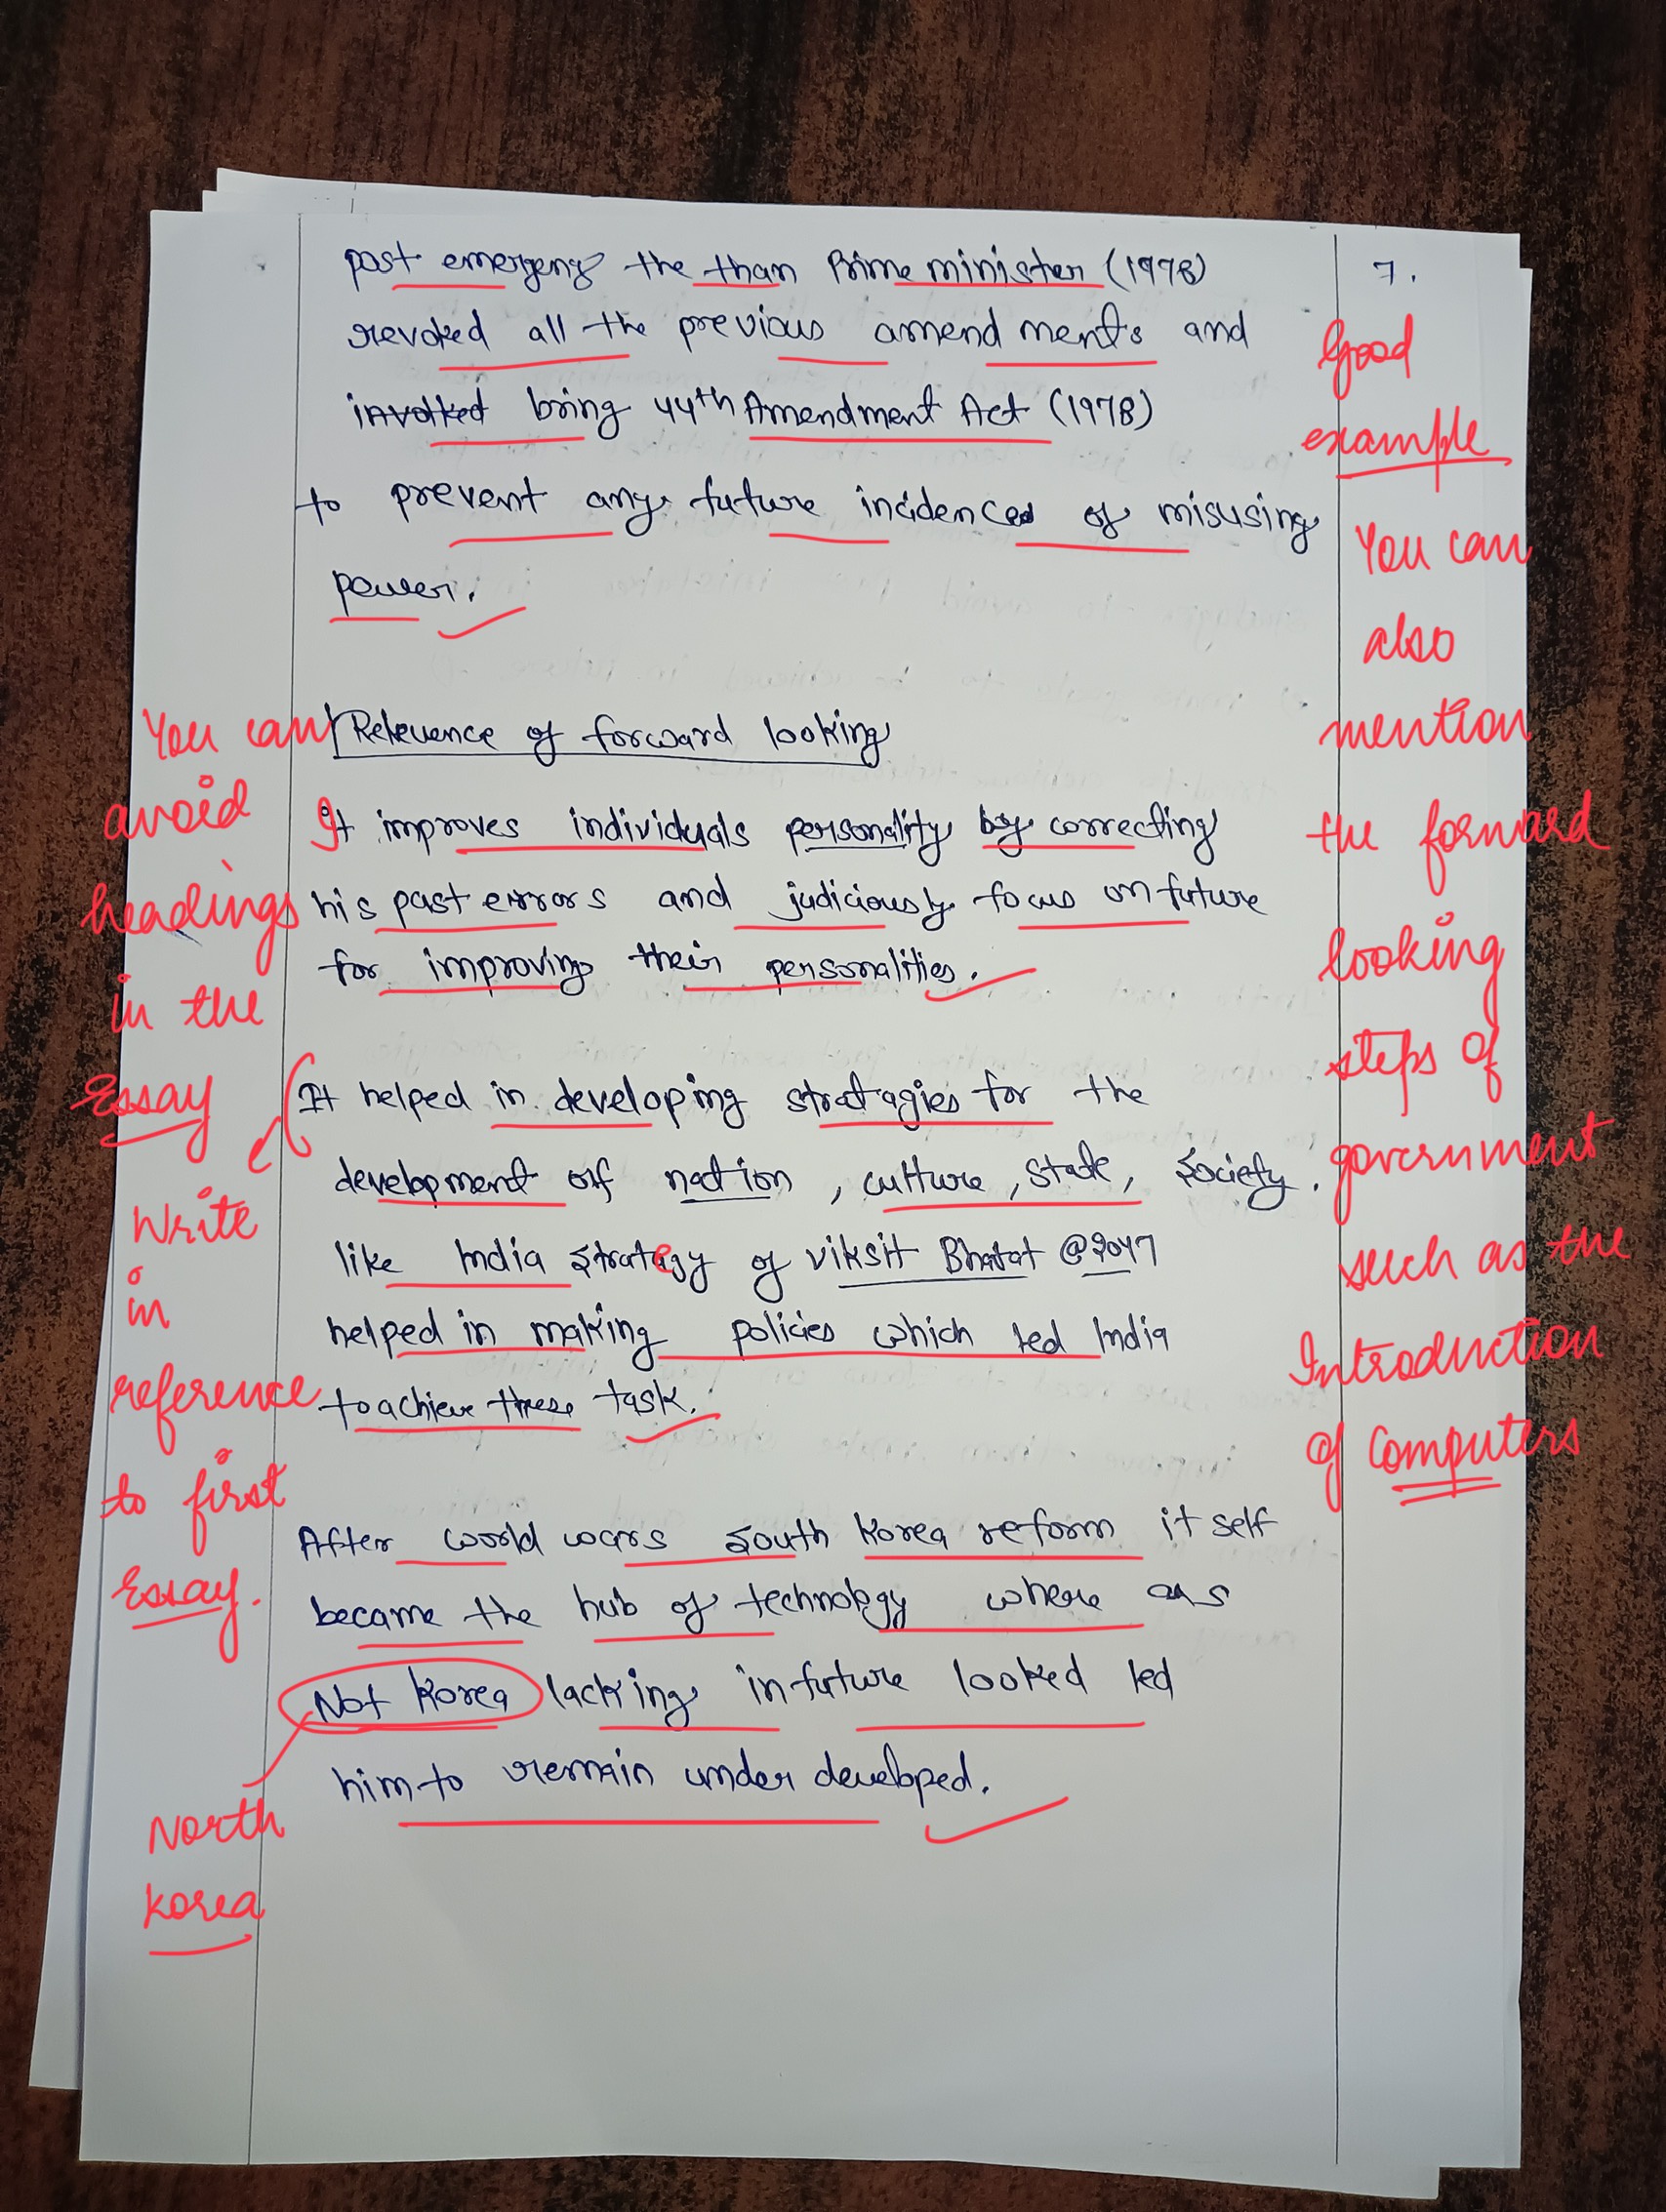 post emergency the than Prime minister (1978)
7.
revoked all the previous amendments and
invoked bring 44th Amendment Act (1978)
to prevent any future incidences of misusing
power.
Good
example
You can
also
mention
the forward
looking
steps of
government
such as the
Introduction
of computers
You can
avoid
headings
in the
Essay
Write
in
reference
to first
Essay.
Relevence of forward looking
It improves individuals personality by correcting
his past errors and judiciously focus on future
for improving their personalities.
It helped in developing stratagies for the
development of nation, culture, state, society.
like India strategy of Viksit Bharat @2047
helped in making policies which led India
to achieve these task.
After world wars South Korea reform it self
became the hub of technology where as
Not Korea lacking in future looked led
him to remain under developed.
North
Korea